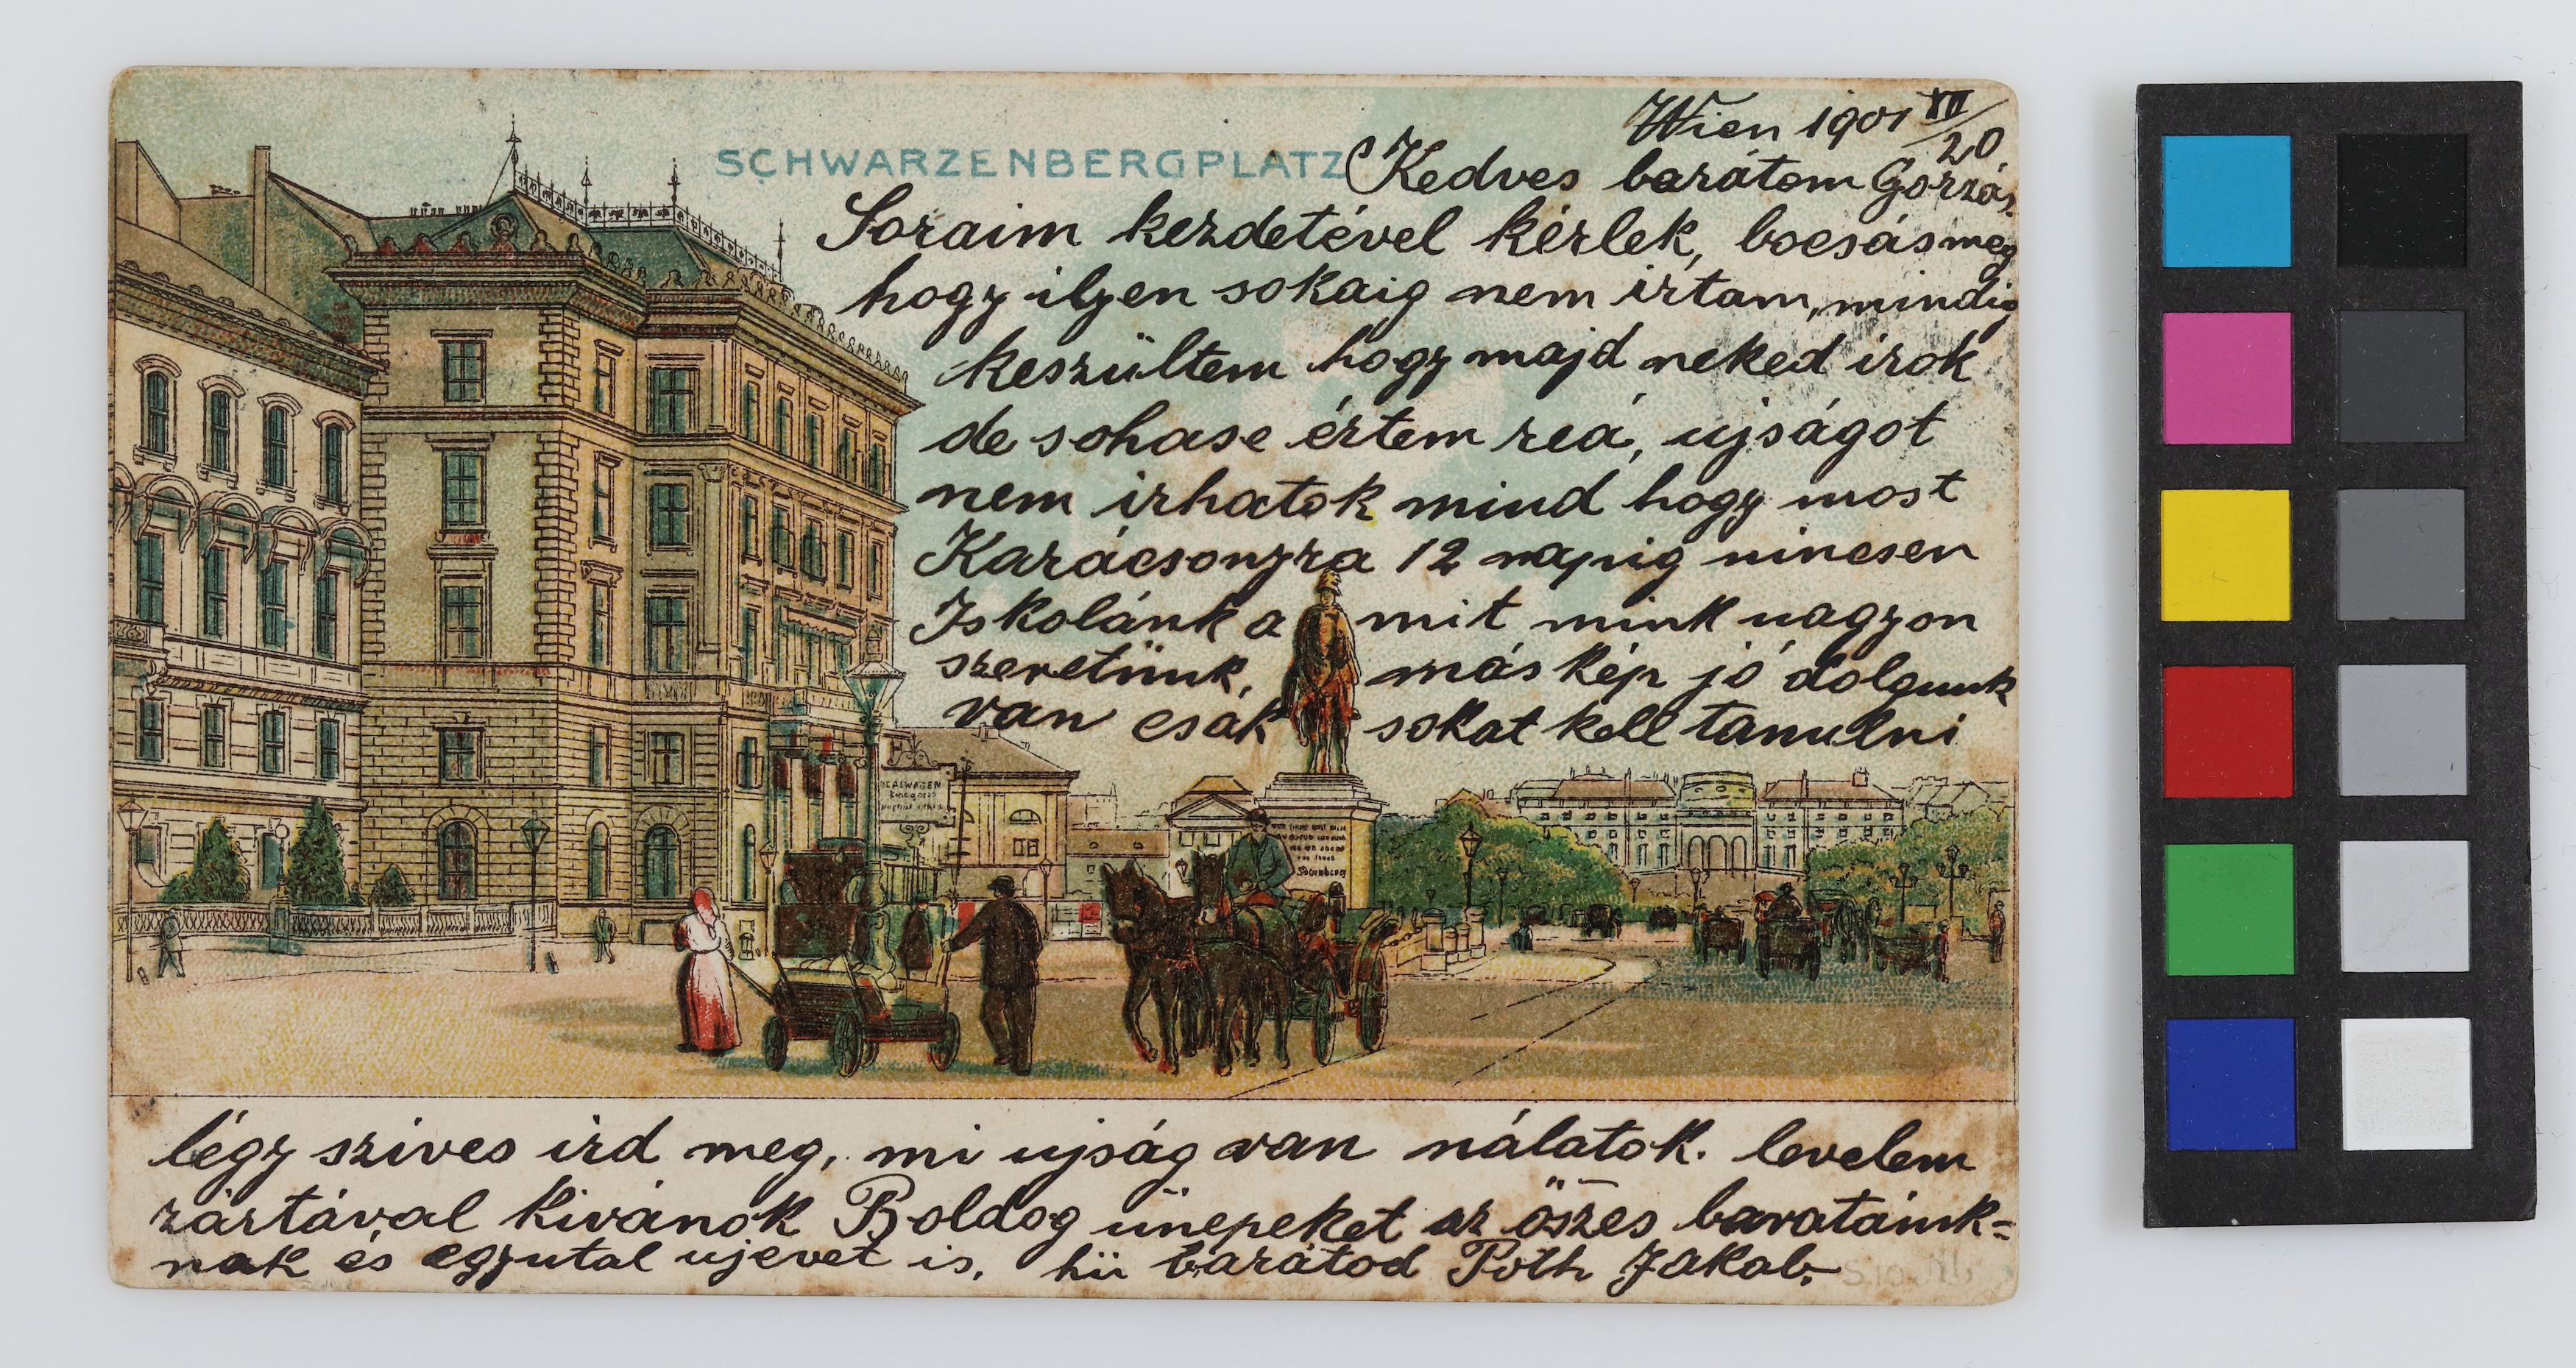 SCHWARZENBERGPLATZ
Wien 1901 XII/20.
Kedves barátom Gorzás.
Soraim kezdetével kérlek, bocsásmeg
hogy ilyen sokaig nem irtam, mindig
keszültem hogy majd neked irok
de sohase értem reá, ujságot
nem irhatok mind hogy most
Karácsonyra 12 napig nincsen
Iskolánk a mit mink nagyon
szeretünk, más kép jó dolgunk
van csak sokat kell tanulni
légy szives ird meg, mi ujság van nálatok. levelem
zártával kivánok Boldog ünepeket az öszes baratáink=
nak és egyutal ujevet is, hü barátod Poth Jakab.